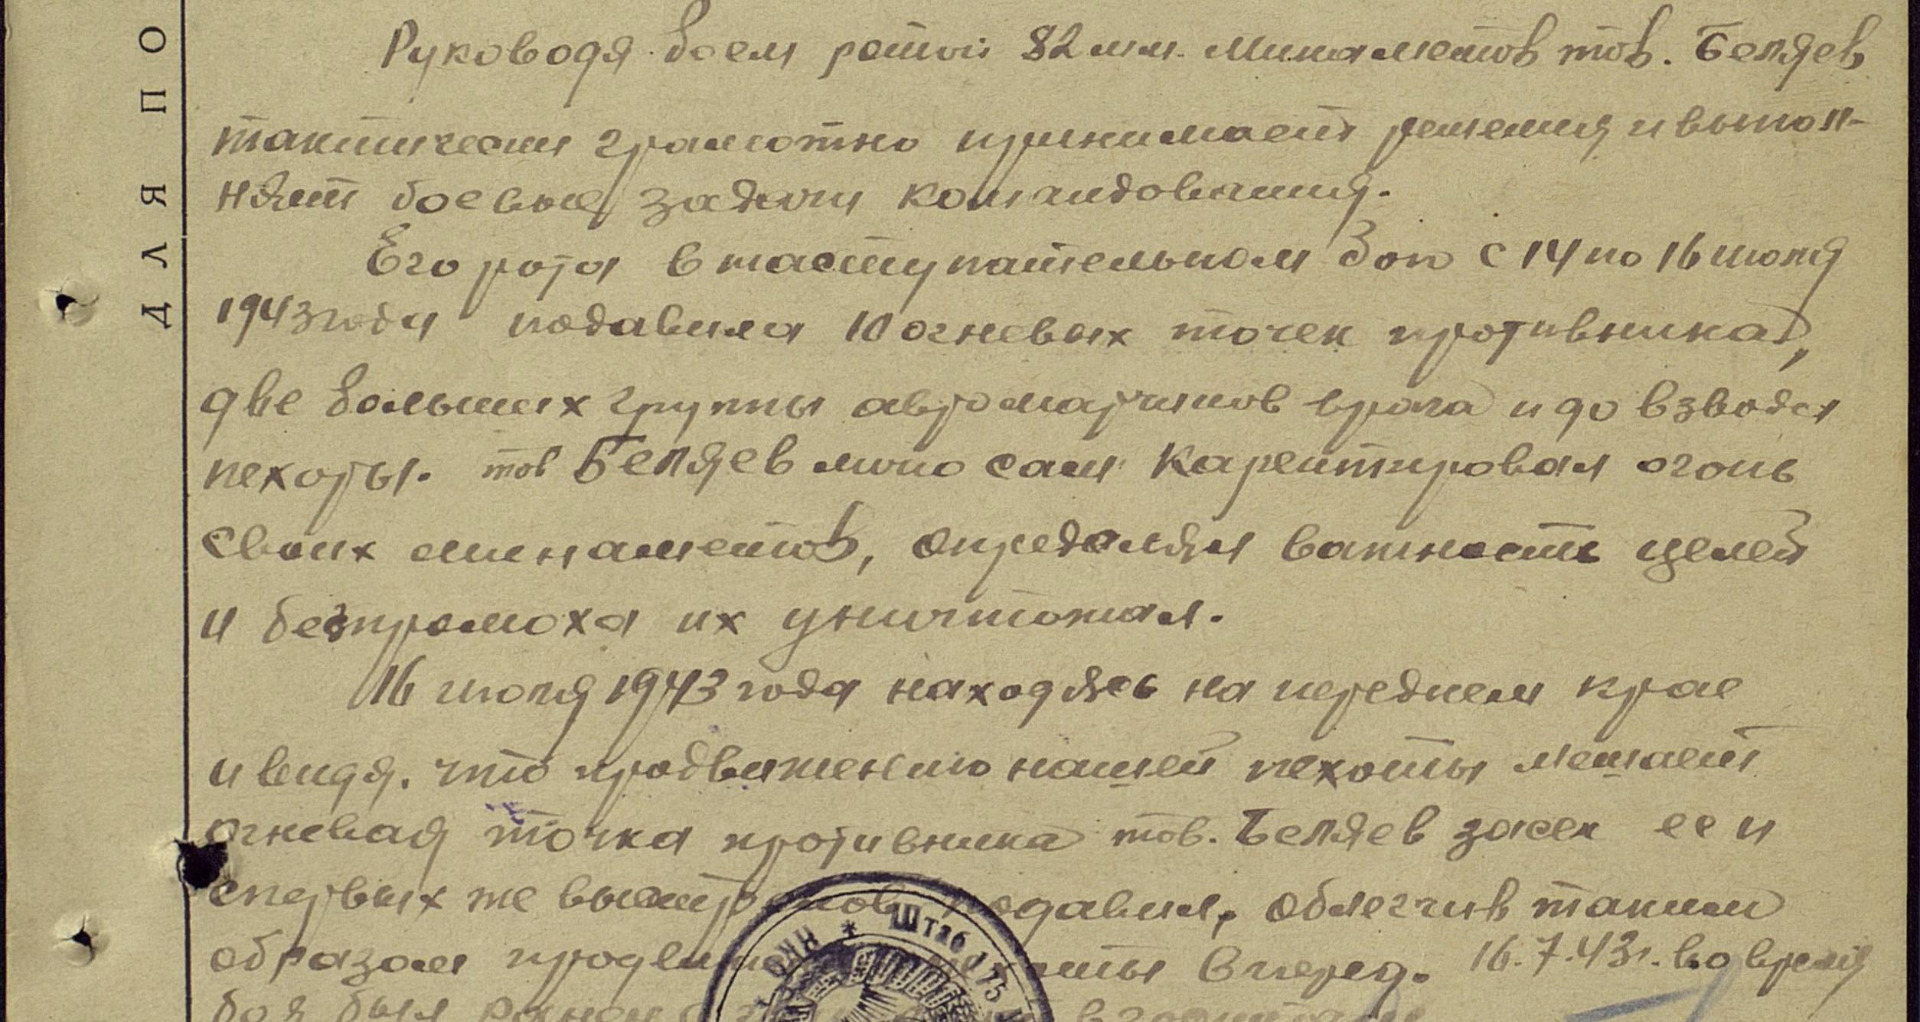 ДЛЯ ПО
Руководя боем ротой 82 мм. минаметов тов. Беляев
тактически грамотно принимает решения и выпол-
няет боевые задачи командования.
Его рота в наступательном бою с 14 по 16 июля
1943 года подавила 10 огневых точек противника,
две больших группы автоматчиков врага и до взвода
пехоты. тов Беляев лично сам каректировал огонь
своих минаметов, определял важность целей
и безпромаха их уничтожал.
16 июля 1943 года находясь на переднем крае
и видя, что продвижению нашей пехоты мешает
огневая точка противника тов. Беляев засек ее и
с первых же выстрелов подавил, облегчив таким
образом пехоты вперед. 16.7.43г. во время
боя был ранен
* Штаб 175
НКО